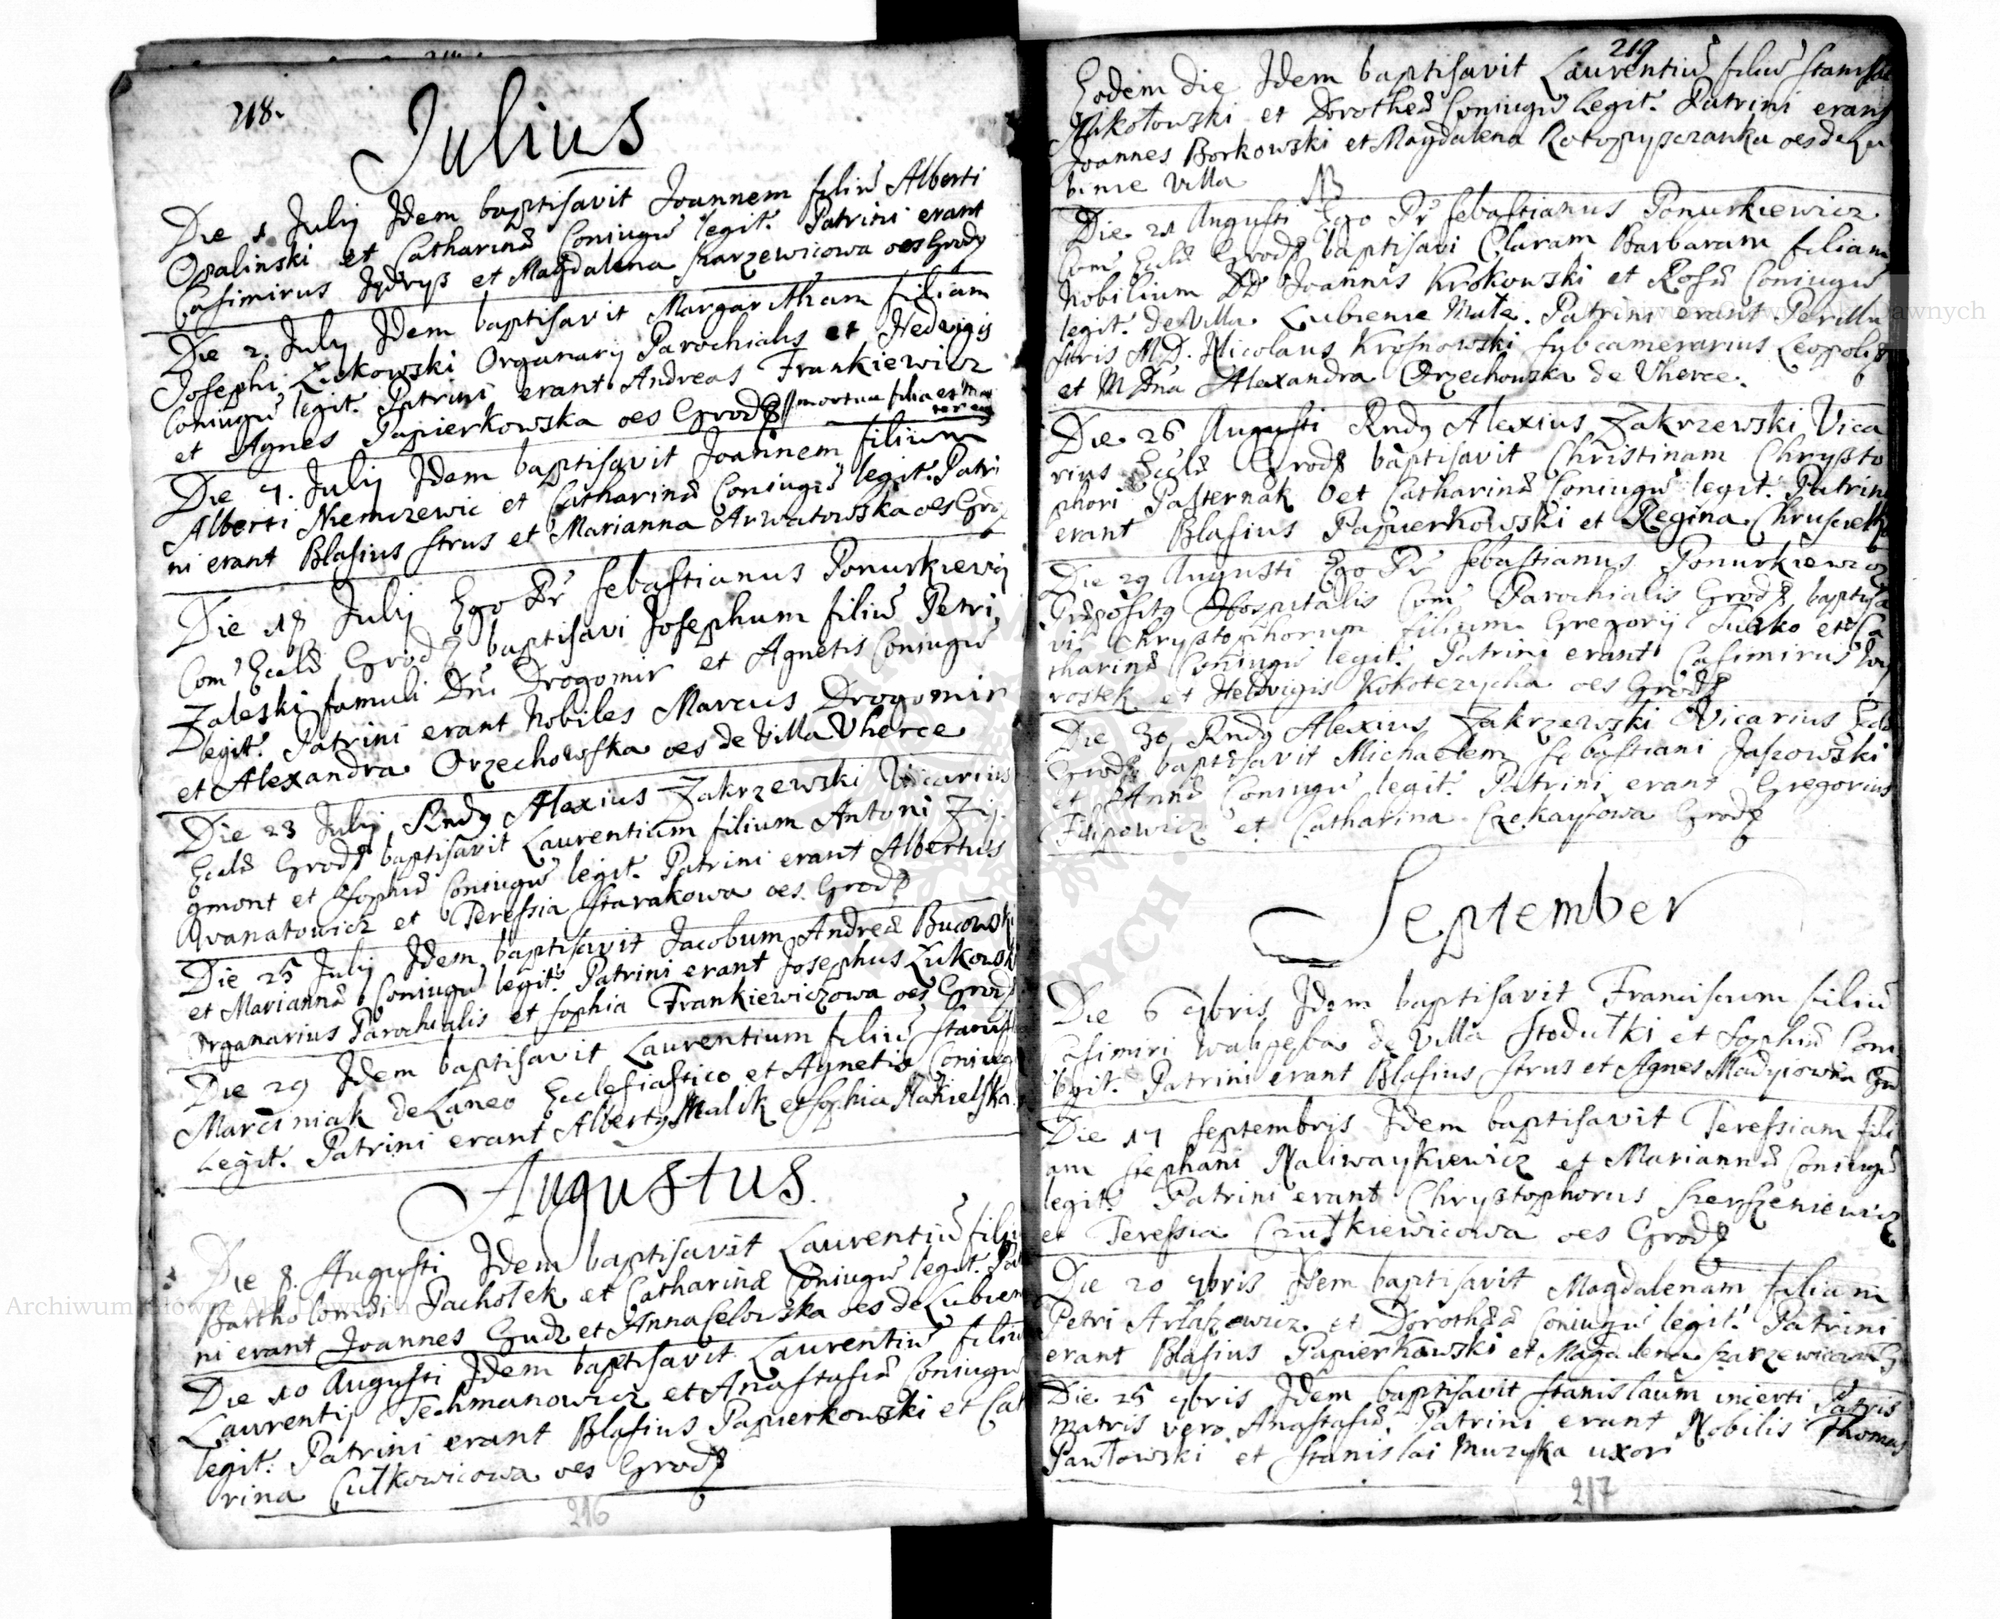 218.
Julius
Die 1 July Idem baptisavit Joannem filiũ Alberti
Opalinski et Catharinæ Coniugũ legit. Patrini erant
Casimirus Jędryß et Magdalena Skarzewicowa oes Grody
Die 2 July Idem baptisavit Margaritham filiam
Josephi Zukowski Organarij Parochialis et Hedvigis
Coniugũ legit. Patrini erant Andreas Frankiewicz
et Agnes Papierkowska oes Grod mortua filia et
Die 7. July Idem baptisavit Joannem filium
Alberti Niemczewic et Catharinæ Coniugũ legit. Patri
ni erant Blasius Strus et Marianna Arwatowska oes Gro
Die 18 July Ego Pr Sebastianus Ponurkiewicz
Com Eccl Grod baptisavi Josephum filiũ Petri
Zaleski famuli Dni Drogomir et Agnetis Coniugũ
legit. Patrini erant Nobiles Marcus Drogomir
et Alexandra Orzechowska oes de Villa Vherce
Die 23 July Rndg Alexius Zakrzewski Vicarius
Eccl Grod baptisavit Laurentium filium Antoni Zy
gmont et Zophiæ Coniugũ legit. Patrini erant Albertus
Iwanatowicz et Teressia Starakowa oes. Grod
Die 25 July Idem baptisavit Jacobum Andreæ Bucowski
et Mariannæ Coniugũ legit. Patrini erant Josephus Zukowski
Organarius Parochialis et Sophia Frankiewiczowa oes Grod
Die 29 Idem baptisavit Laurentium filiũ Stanisl
Marciniak de Laneo Ecclesiastico et Agnetis Coniug
Legit. Patrini erant Albertg Malik et Sophia Nakielska
Augustus.
Die 8. Augusti Idem baptisavit Laurentiũ filiũ
Bartholomæi Pachołek et Catharinæ Coniugũ legit. Pat
ni erant Joannes Gudz et Anna Selowska oes de Lubien
Die 10 Augusti Idem baptisavit Laurentiũ filiũ
Laurentij Techmanowicz et Anastasiæ Coniugũ
legit. Patrini erant Blasius Papierkowski et Cat
rina Cutkowicowa oes Grod
216
219
Eodem die Idem baptisavit Laurentiũ filiũ Stanislai
Mikołowski et Dorotheæ Coniugũ legit. Patrini erant
Joannes Borkowski et Magdalena Rotopysczanka oes de Lu
bienie Villa
Die 21 Augusti Ego Pr Sebastianus Ponurkiewicz
Com Eccl Grod baptisavi Claram Barbaram filiam
Nobilium DD Joannis Krokowski et Rosæ Coniugũ
legit. de Villa Lubienie Małe. Patrini erant Perillu
stris M.D. Nicolaus Krosnowski Subcamerarius Leopolis
et M Dna Alexandra Orzechowska de Vherce.
Die 26 Augusti Rndg Alexius Zakrzewski Vica
rius Eccl Grod baptisavit Christinam Chrysto
phori Pasternak et Catharinæ Coniugũ legit. Patrini
erant Blasius Papierkowski et Regina Chruscielka
Die 29 Augusti Ego Pr Sebastianus Ponurkiewicz
Præpositg Hospitalis Com Parochialis Grod baptisa
vi Chrystophorum filium Gregorij Turko et Ca
tharinæ Coniugũ legit. Patrini erant Casimirus Wy
rostek et Hedvigis Kokotczycha oes Grod
Die 30 Rndg Alexius Zakrzewski Vicarius Eccl
Grod baptisavit Michaelem Sebastiani Jaszowski
et Annæ Coniugũ legit. Patrini erant Gregorius
Filipowicz et Catharina Czekaysowa Grod
September
Die 6 7bris Idem baptisavit Franciscum filiũ
Casimiri Walizęba de Villa Stodułki et Sophiæ Coni
legit. Patrini erant Blasius Strus et Agnes Madyiowna Gro
Die 17 Septembris Idem baptisavit Teressiam fili
am Stephani Naliwaykiewicz et Mariannæ Coniugũ
legit. Patrini erant Chrystophorus Szerszeniewicz
et Teressia Czutkiewicowa oes Grod
Die 20 7bris Idem baptisavit Magdalenam filiam
Petri Arłaszewicz et Dorotheæ Coniugũ legit. Patrini
erant Blasius Papierkowski et Magdalena Skarzewicowa G
Die 25 7bris Idem baptisavit Stanislaum incerti Patris
matris vero Anastasiæ. Patrini erant Nobilis Thomas
Pawłowski et Stanislai Muzyka uxor
217
Archiwum Główne Akt Dawnych
Archiwum Główne Akt Dawnych